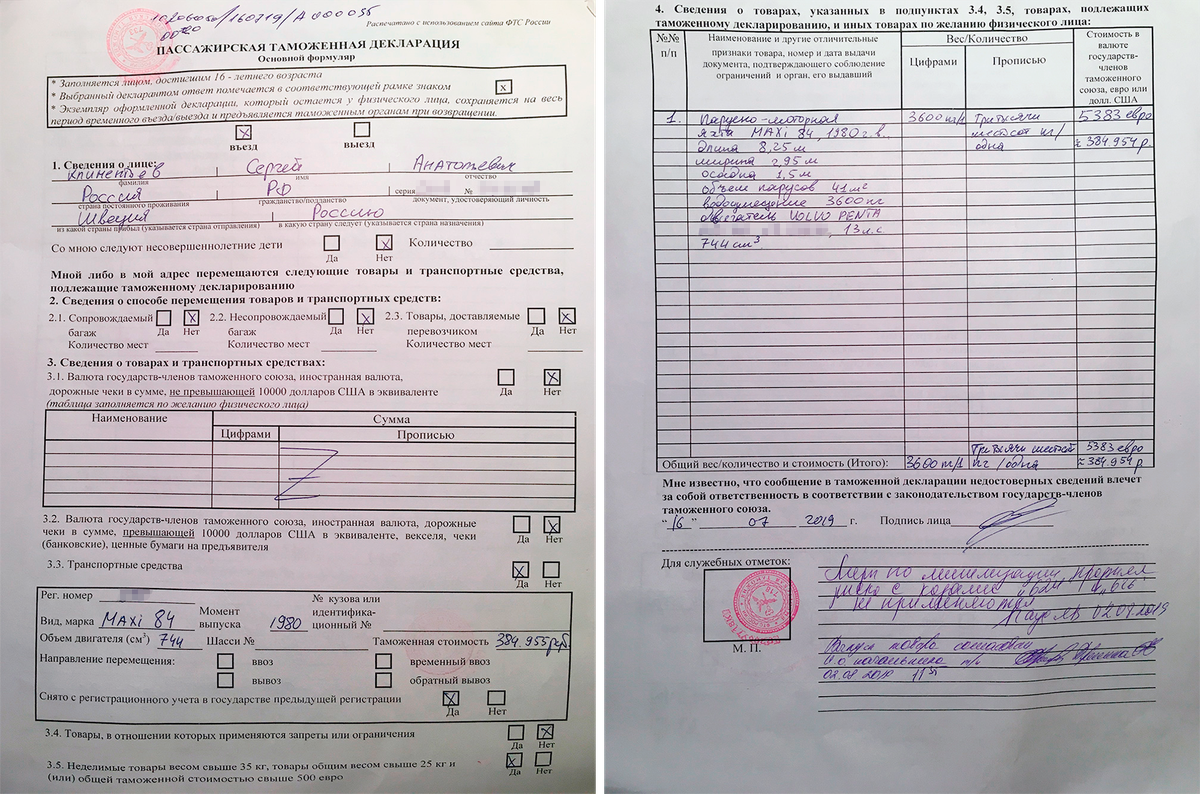 10206060/160719/А000055
Распечатано с использованием сайта ФТС России
ПАССАЖИРСКАЯ ТАМОЖЕННАЯ ДЕКЛАРАЦИЯ
Основной формуляр
* Заполняется лицом, достигшим 16 - летнего возраста
* Выбранный декларантом ответ помечается в соответствующей рамке знаком x
* Экземпляр оформленной декларации, который остается у физического лица, сохраняется на весь
период временного въезда/выезда и предъявляется таможенным органам при возвращении.
X
въезд выезд
1. Сведения о лице:
Климентьев Сергей Анатольевич
фамилия имя отчество
Россия РФ серия №
страна постоянного проживания гражданство/подданство документ, удостоверяющий личность
Швеция Россию
из какой страны прибыл (указывается страна отправления) в какую страну следует (указывается страна назначения)
Со мною следуют несовершеннолетние дети X Количество
Да Нет
Мной либо в мой адрес перемещаются следующие товары и транспортные средства,
подлежащие таможенному декларированию
2. Сведения о способе перемещения товаров и транспортных средств:
2.1. Сопровождаемый X 2.2. Несопровождаемый X 2.3. Товары, доставляемые X
багаж Да Нет багаж Да Нет перевозчиком Да Нет
Количество мест Количество мест Количество мест
3. Сведения о товарах и транспортных средствах:
3.1. Валюта государств-членов таможенного союза, иностранная валюта, X
дорожные чеки в сумме, не превышающей 10000 долларов США в эквиваленте Да Нет
(таблица заполняется по желанию физического лица)
Наименование Сумма
Цифрами Прописью
3.2. Валюта государств-членов таможенного союза, иностранная валюта, дорожные X
чеки в сумме, превышающей 10000 долларов США в эквиваленте, векселя, чеки Да Нет
(банковские), ценные бумаги на предъявителя
3.3. Транспортные средства X
Да Нет
Рег. номер № кузова или
Вид, марка MAXi 84 Момент выпуска 1980 идентифика-
ционный №
Объем двигателя (см³) 744 Шасси № Таможенная стоимость 384.955руб.
Направление перемещения: ввоз временный ввоз
вывоз обратный вывоз
Снято с регистрационного учета в государстве предыдущей регистрации X
Да Нет
3.4. Товары, в отношении которых применяются запреты или ограничения X
Да Нет
3.5. Неделимые товары весом свыше 35 кг, товары общим весом свыше 25 кг и X
(или) общей таможенной стоимостью свыше 500 евро Да Нет
4. Сведения о товарах, указанных в подпунктах 3.4, 3.5, товарах, подлежащих
таможенному декларированию, и иных товарах по желанию физического лица:
№№ п/п Наименование и другие отличительные
признаки товара, номер и дата выдачи
документа, подтверждающего соблюдение
ограничений и орган, его выдавший
Вес/Количество
Цифрами Прописью
Стоимость в
валюте
государств-
членов
таможенного
союза, евро или
долл. США
1. Парусно-моторная 3600 кг/1 Три тысячи 5383 евро
яхта MAXi 84, 1980 г.в. шестсот кг/ ≈ 384.954 р.
длина 8,25 м одна
ширина 2,95 м
осадка 1,5 м
объем парусов 41 м²
водоизмещение 3600 кг
двигатель VOLVO PENTA
, 13 л.с
744 cm³
Три тысячи шестсот 5383 евро
Общий вес/количество и стоимость (Итого): 3600 кг/1 кг/одна ≈ 384.954 р.
Мне известно, что сообщение в таможенной декларации недостоверных сведений влечет
за собой ответственность в соответствии с законодательством государств-членов
таможенного союза.
“ 16 ” 07 2019 г. Подпись лица
Для служебных отметок:
Меры по минимизации профиля
риска с кодами
не применяются
02.08 2019
Выпуск товара
И о начальника т/п
М. П.